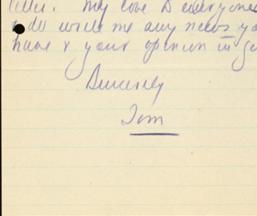 letter. My love to everyone
& do write me any news yo
have & your opinion in ge
Sincerely
Tom